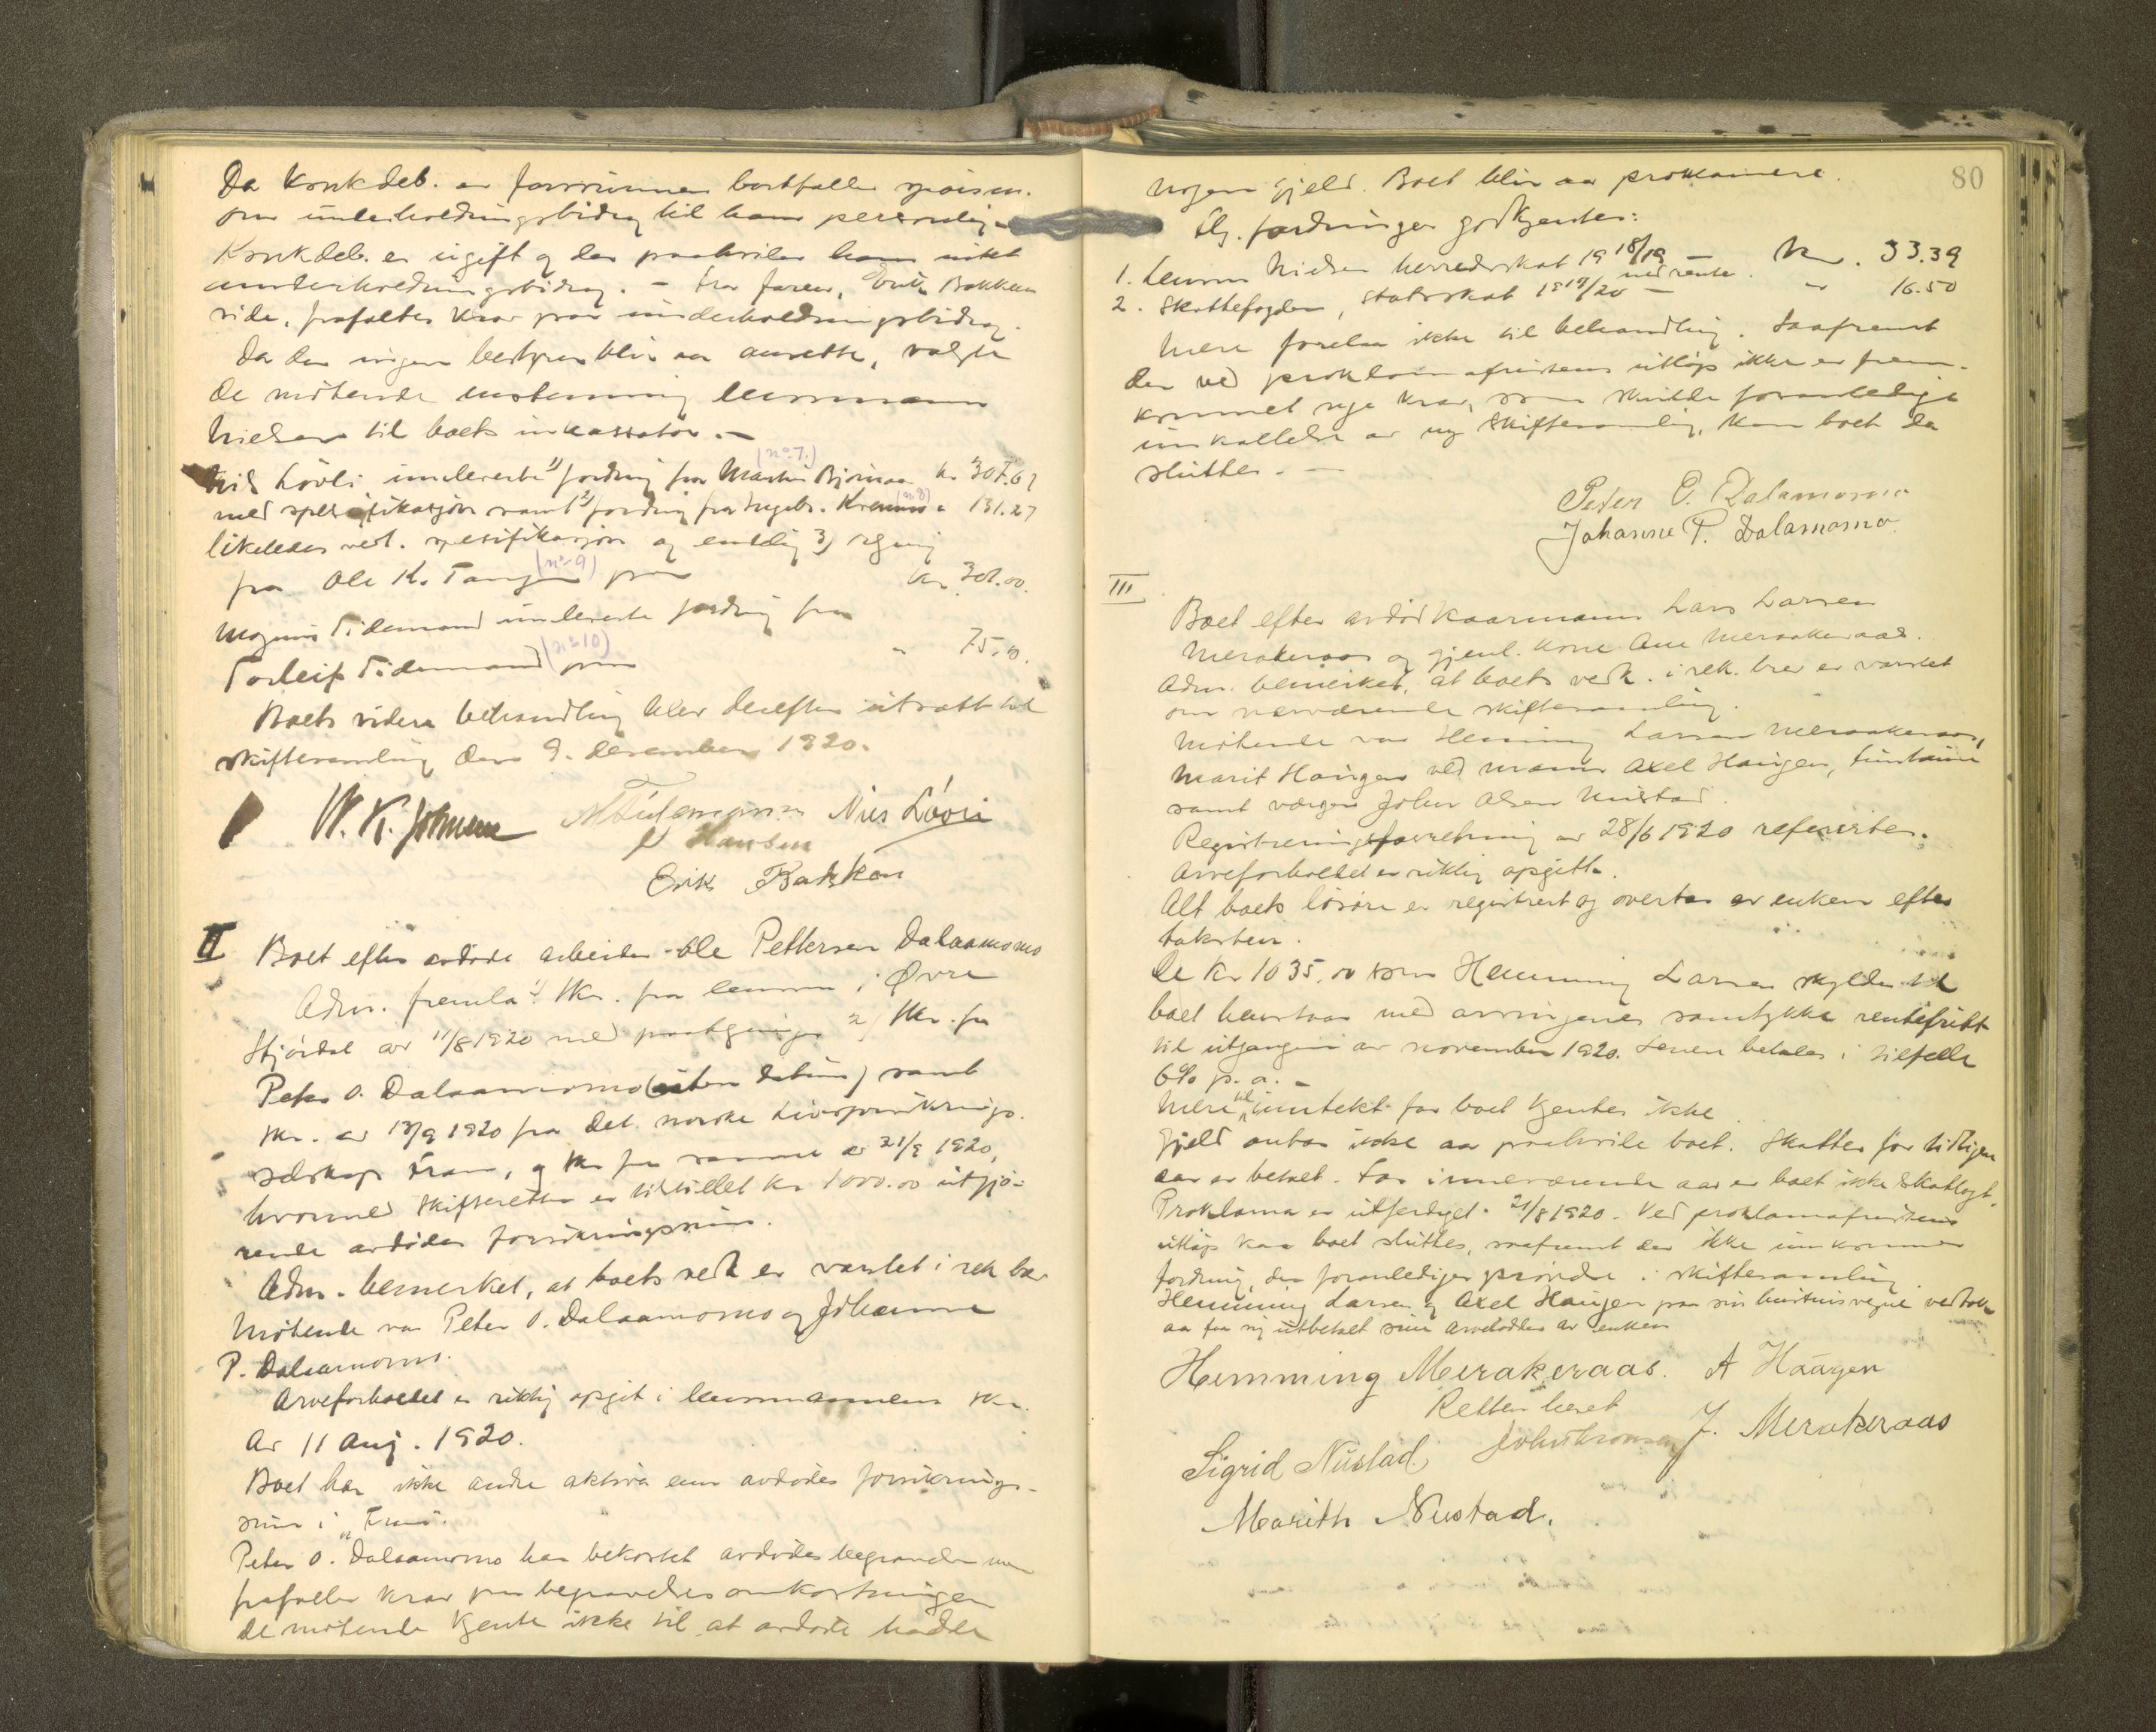 Da konkdeb. er forsvunnen bortfaller spörsm.
om underholdningsbidrag til ham personlig.
Konkdeb. er ugift og der paahviler ham intet
underholdningsbidrag. - Fra faren, Erik Bakkens
side, frafaltes krav paa underholdningsbidrag.
Da der ingen bestyrer blir aa ansette, valgte
de mötende enstemmig lensmann
Nielsen til boets inkassator. -
Nils Lövli innleverte 1) fordring fra Martin Björnaas (no 7.) kr. 307.67
med spesifikasjon samt 2) fordring fra Ingebr. (no 8) " 131.27
likeledes ved. spesifikasjon og endelig 3) regning
fra Ole K. Tangen (no 9) paa kr. 301.00.
Magnus Tidemand innleverte fordring fra
Torleif Tidemand (no 10) paa " 75.00.
Boets videre behandling blev derefter utsatt til
skiftesamling den 9. desember 1920.
W. K. Johnsen M Tidemann Nils Lövli
Hansen
Erik Bakken
II Boet efter avdöde arbeider Ole Pettersen Dalaamomo
Adm. fremla 1) skr. fra lensm. i Øvre
Stjördal av 11/8 1920 med paategning 2) skr. fra
Peter O. Dalaamomo (uten datum) samt
skr. av 13/9 1920 fra Det norske Livsforsikrings-
selskap Fram, og skr. fra samme av 21/9 1920,
hvormed skifteretten er tilstillet kr 1000.00 utgjö-
rende avdödes forsikringssum.
Adm. bemerket, at boets vedk er varslet i rek brev
Mötende var Peter O. Dalaamomo og Johanne
P. Dalaamomo.
Arveforholdet er riktig opgit i lensmannens skr.
av 11 Aug. 1920.
Boet har ikke andre aktiva enn avdödes forsikrings-
sum i "Fram".
Peter O. Dalaamomo har bekostet avdödes begravelse men
frafaller krav paa begravelsesomkostningen
De mötende kjente ikke til at avdöde hadde
80
nogen gjeld. Boet blir aa proklamere.
Flg. fordringer godkjentes:
1. Lensm Nielsen herredsskat 1918/19 - Kr. 33.39
2. Skattefogden, statsskat 1919/20 med rente - " 16.50
Mere forelaa ikke til behandling. Saafremt
der ved proklamafristens utlöp ikke er frem-
kommet nye krav, som skulde foranledige
innkallelse av ny skiftesamling, kan boet da
sluttes. -
Peder O. Dalamomo
Johanne P. Dalamomo.
III
Boet efter avdöd kaarmann Lars Larsen
Merakeraas og gjenl. kone Ane Meraakeraas.
Adm. bemerket, at boets vedk. i rek. brev er varslet
om nærværende skiftesamling.
Mötende var Hemming Larsen Meraakeraas,
Marit Haugen ved mann Axel Haugen,
samt vergen Johan Olsen Nustad.
Registreringsforretning av 28/6 1920 referertes.
Arveforholdet er riktig opgitt.
Alt boets lösöre er registrert og overtas av enken efter
taksten.
De Kr 1035.00 som Hemming Larsen skylder til
boet henstaar med arvingenes samtykke rentefritt
til utgangen av november 1920. Senere betales i tilfelle
6% p. a. -
Mere til inntekt for boet kjentes ikke.
Gjeld antas ikke aa paahvile boet. Skatter for tidligere
aar er betalt. For inneværende aar er boet ikke skatlagt.
Proklama er utferdiget 21/8 1920. Ved proklamafristens
utlöp kan boet sluttes, saafremt der ikke innkommer
fordring, der foranlediger prövelse i skiftesamling.
Hemming Larsen og Axel Haugen paa sin hustrus vegne vedtok
aa faa sig utbetalt sine arvelodder av enken
Hemming Merakeraas. A Haagen
Retten hevet
J. Merakeraas
Sigrid Nustad.
Marith Nustad.